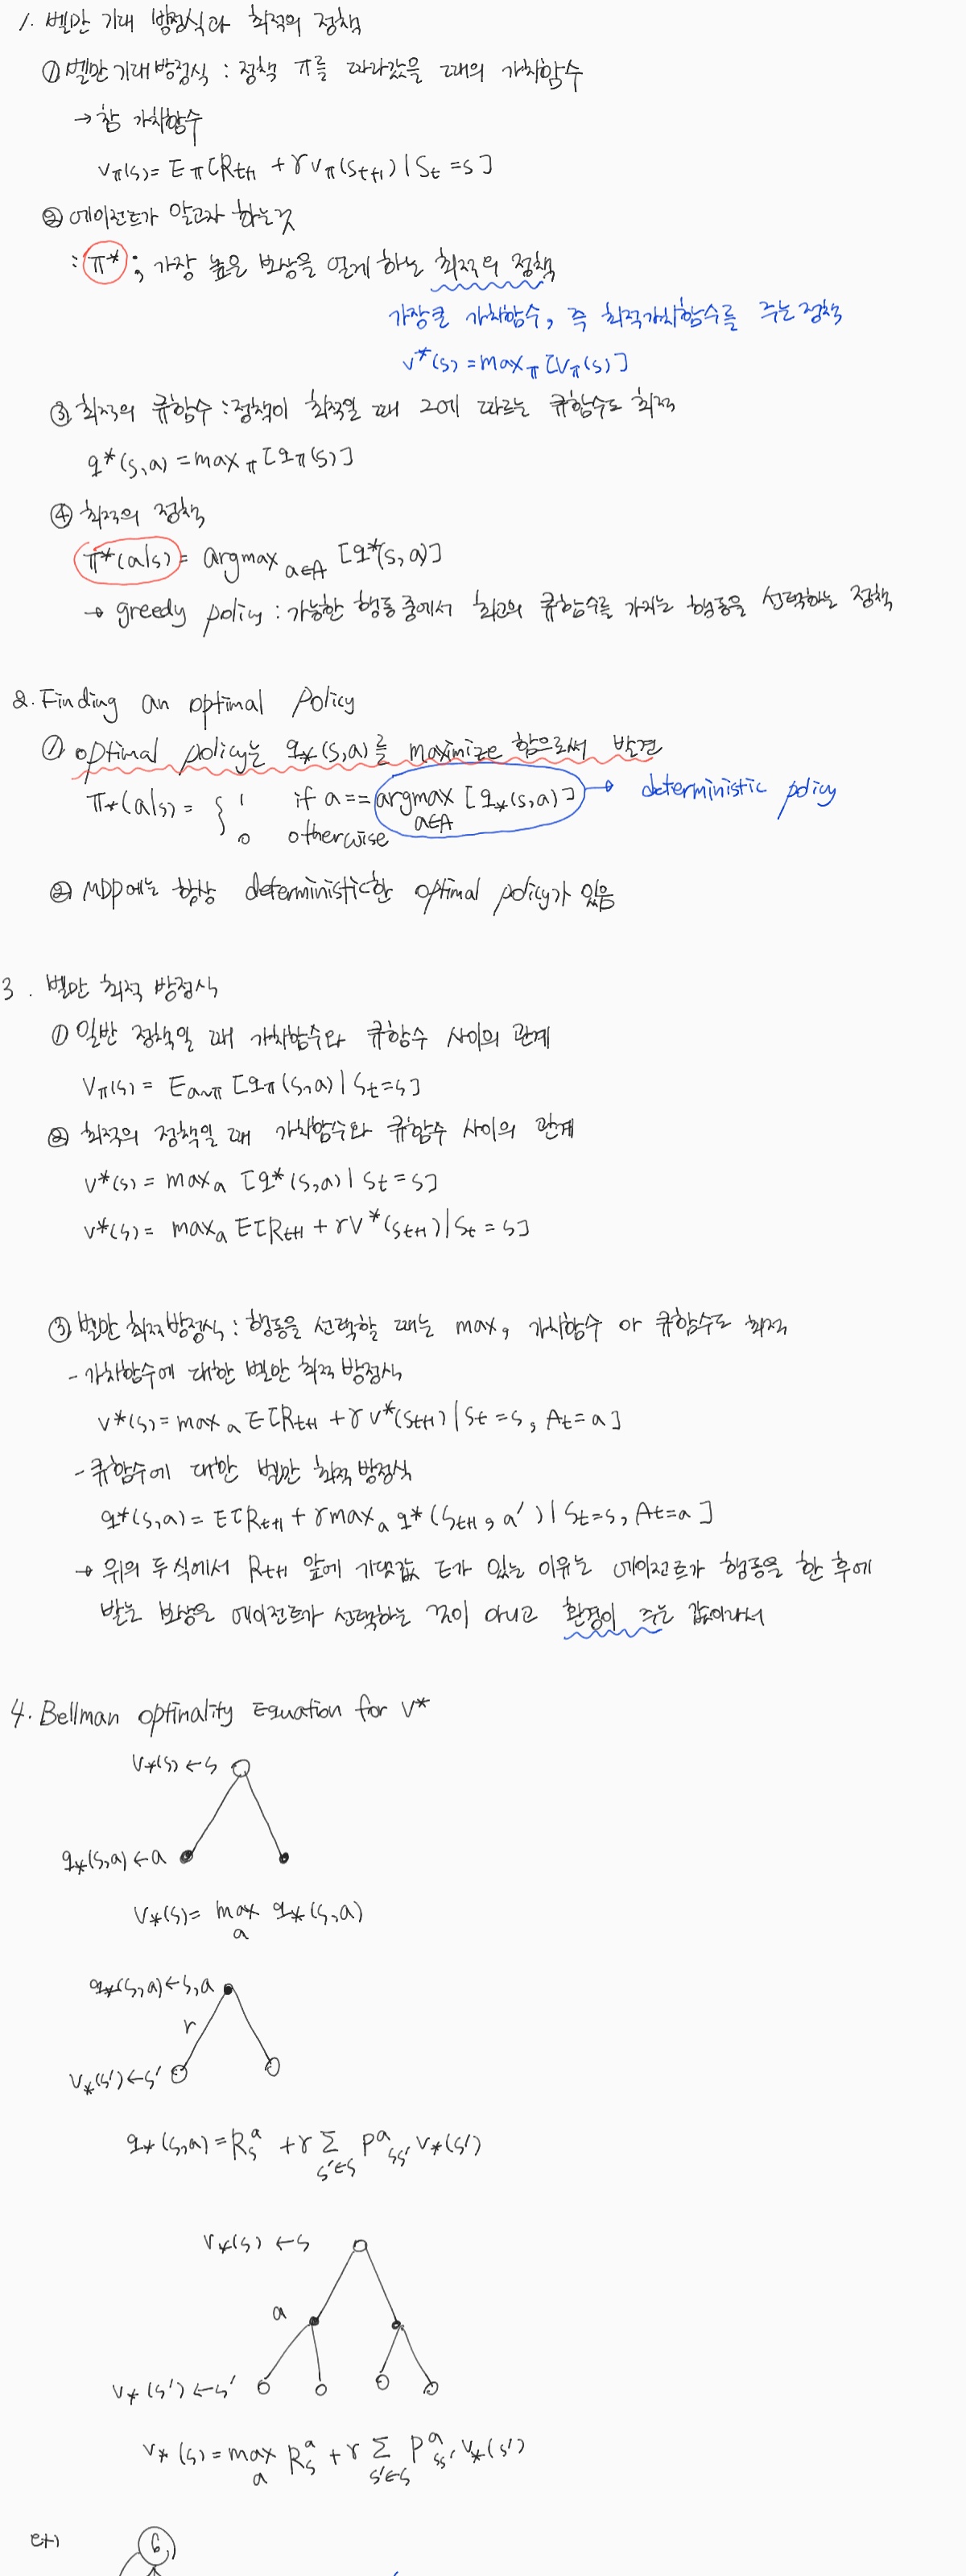 1. 벨만 기대 방정식과 최적의 정책
① 벨만 기대 방정식 : 정책 π를 따라갔을 때의 가치함수
→ 참 가치함수
vπ(s) = Eπ[Rt+1 + γvπ(St+1) | St = s]
② 에이전트가 알고자 하는 것
: π* ; 가장 높은 보상을 얻게 하는 최적의 정책
가장 큰 가치함수, 즉 최적가치함수를 주는 정책
v*(s) = maxπ [vπ(s)]
③ 최적의 큐함수 : 정책이 최적일 때 그에 따르는 큐함수도 최적
q*(s,a) = maxπ [qπ(s)]
④ 최적의 정책
π*(a|s) = argmax a∈A [q*(s,a)]
→ greedy policy : 가능한 행동 중에서 최고의 큐함수를 가지는 행동을 선택하는 정책
2. Finding an optimal Policy
① optimal policy는 q*(s,a)를 maximize 함으로써 발견
π*(a|s) = { 1 if a == argmax [q*(s,a)] → deterministic policy
a∈A
0 otherwise
② MDP에는 항상 deterministic한 optimal policy가 있음
3. 벨만 최적 방정식
① 일반 정책일 때 가치함수와 큐함수 사이의 관계
vπ(s) = Ea~π [qπ(s,a) | St=s]
② 최적의 정책일 때 가치함수와 큐함수 사이의 관계
v*(s) = maxa [q*(s,a) | St = s]
v*(s) = maxa E[Rt+1 + γv*(St+1) | St = s]
③ 벨만 최적방정식 : 행동을 선택할 때는 max, 가치함수 or 큐함수도 최적
- 가치함수에 대한 벨만 최적 방정식
v*(s) = maxa E[Rt+1 + γv*(St+1) | St = s, At = a]
- 큐함수에 대한 벨만 최적 방정식
q*(s,a) = E[Rt+1 + γmaxa q*(St+1, a') | St=s, At=a]
→ 위의 두 식에서 Rt+1 앞에 기댓값 E가 있는 이유는 에이전트가 행동을 한 후에
받는 보상은 에이전트가 선택하는 것이 아니고 환경이 주는 값이라서
4. Bellman optinality Equation for v*
v*(s) ← s
q*(s,a) ← a
v*(s) = max q*(s,a)
a
q*(s,a) ← s,a
r
v*(s') ← s'
q*(s,a) = Rsa + γ Σ Pass' v*(s')
s'∈S
v*(s) ← s
a
v*(s') ← s'
v*(s) = max Rsa + γ Σ Pass' v*(s')
a s'∈S
ex)
6